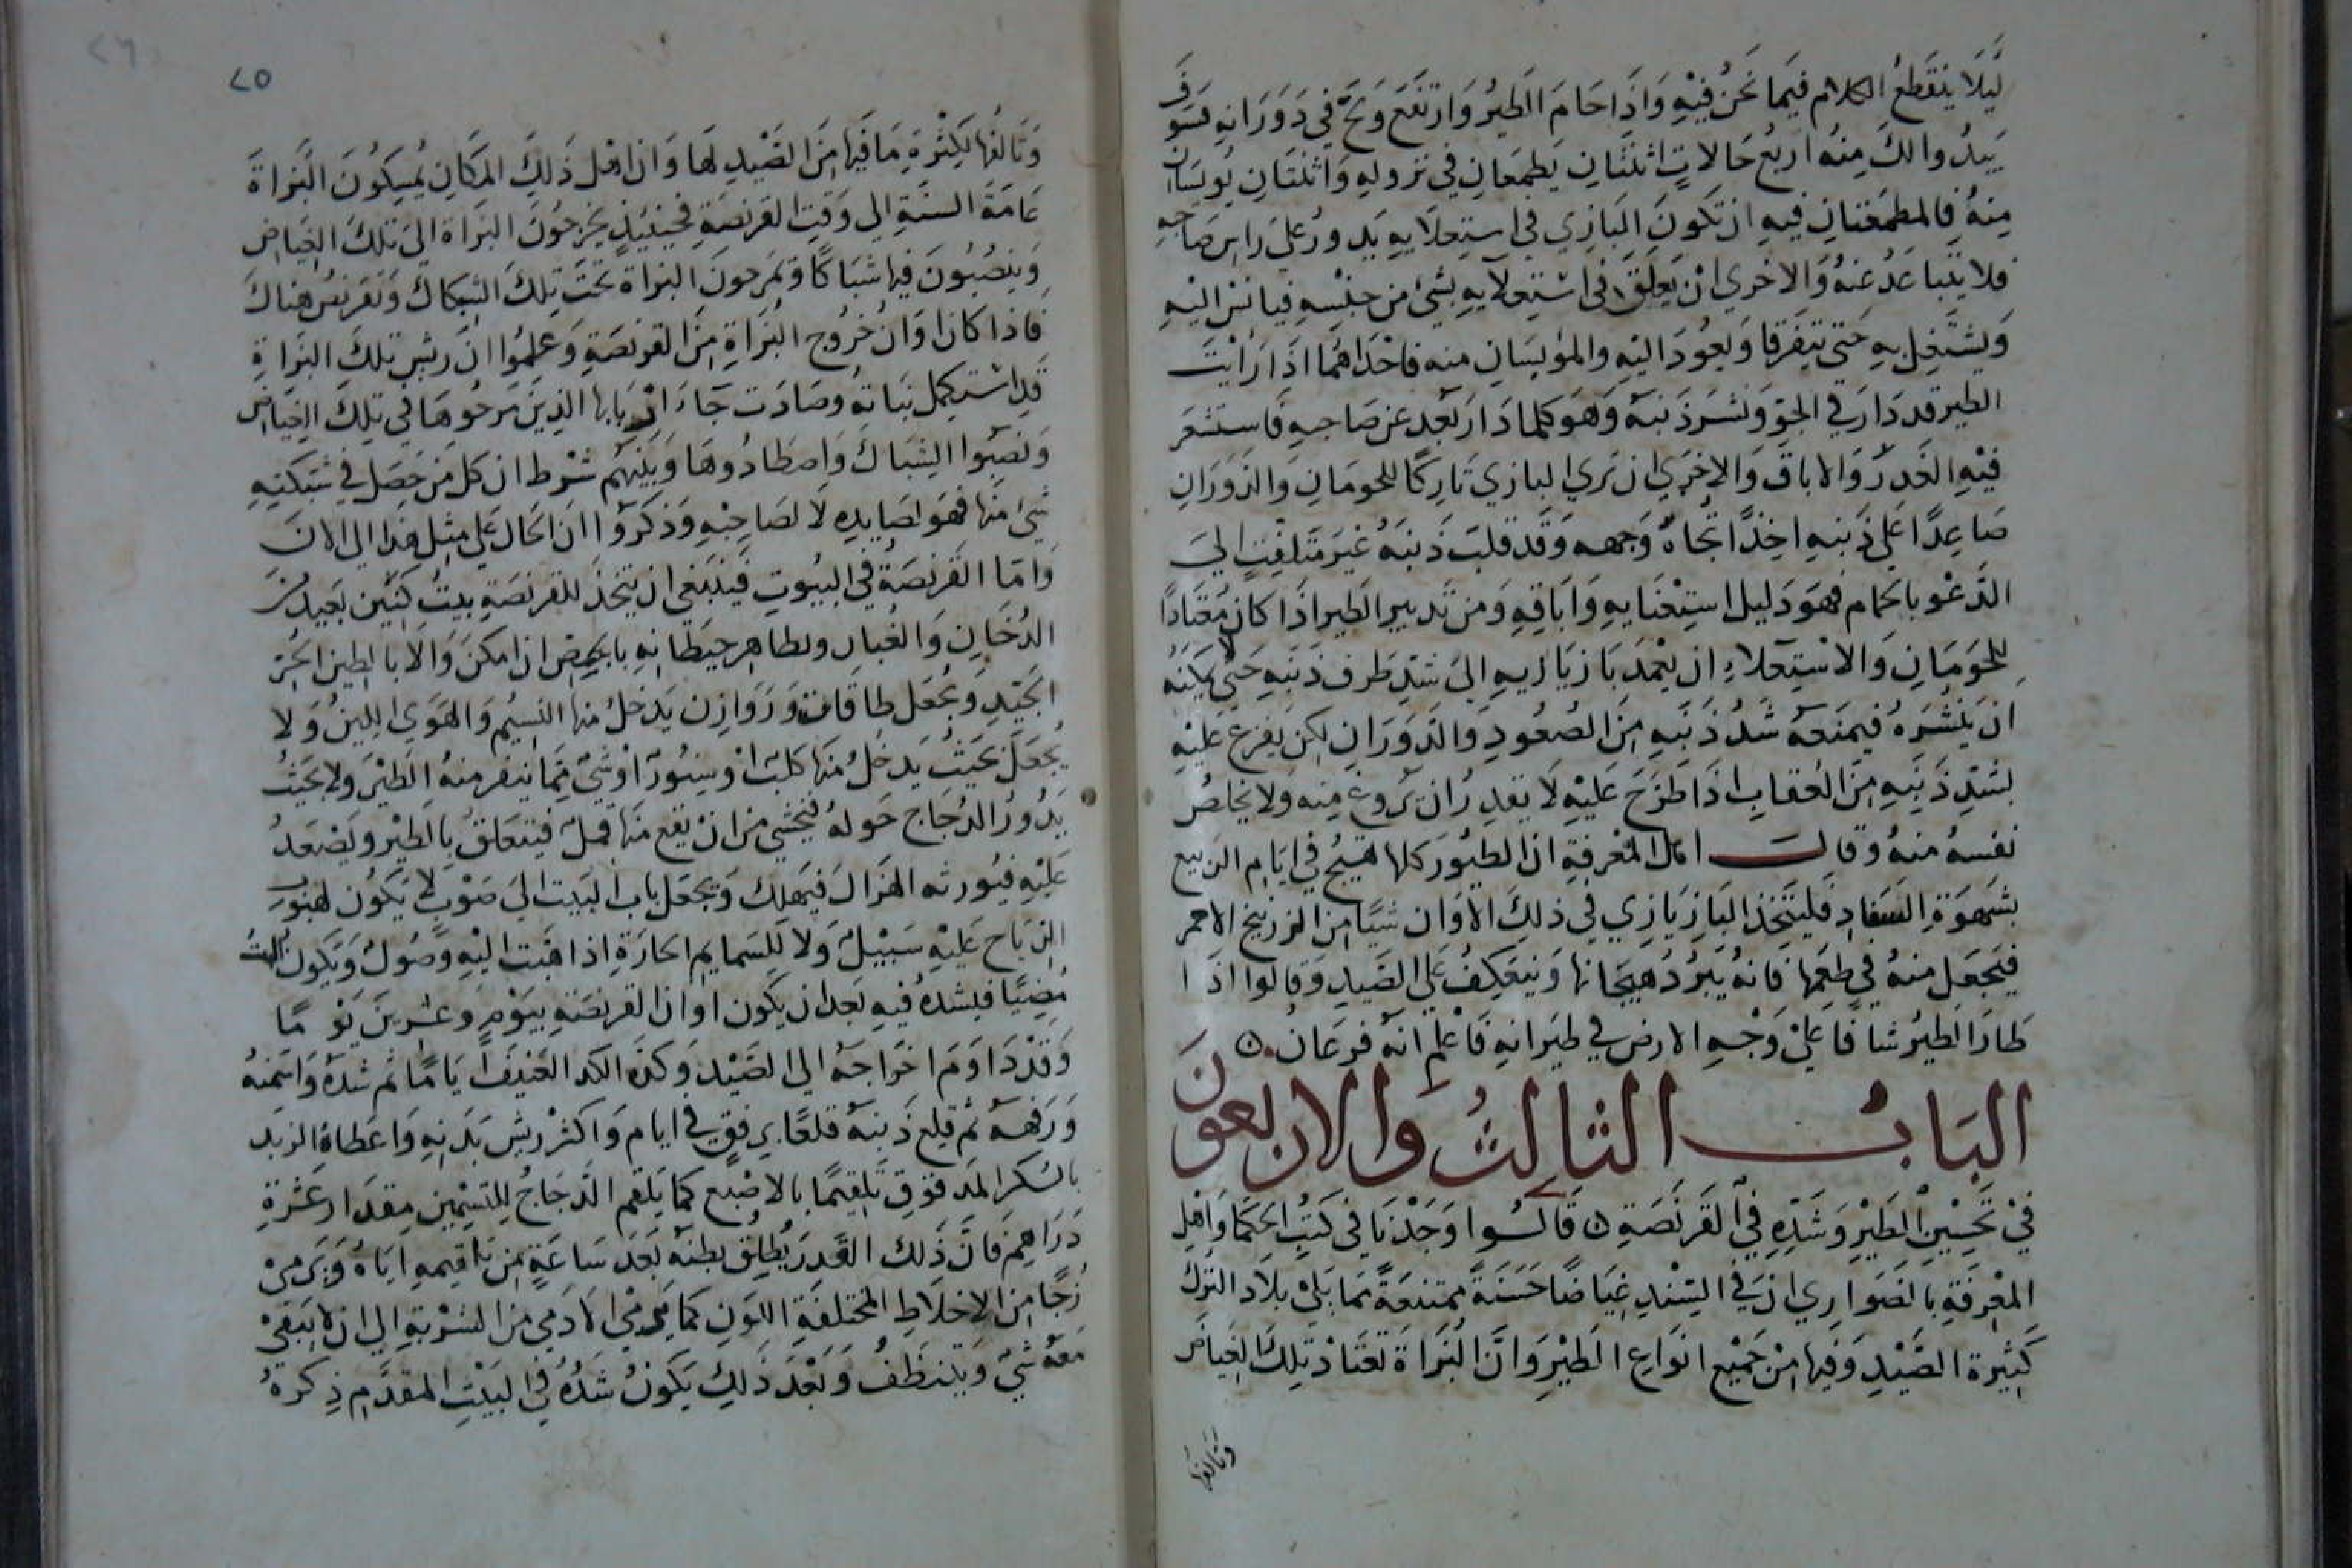 لَّيلَا ينقَطعُ الكلام فيَما نَحنُ فيْهِ وَاذَا حَامَ الطيرُ وَارتفَعَ وَلجّ في دَوَرَانهِ فسَوفَ
يَبدُوا لكَ مِنهُ اربعُ حَالاتٍ اثنتَان يَطمَعانِ في نزولهِ وَاثنتَانِ يُويسَانِ
مِنهُ فالمطمعَتانِ فيهِ ان تكونَ البَازي في استِعلَايهِ يَدورُ عَلي راسِ صَاحبهِ
فلا يتَباعَدُ عَنهُ وَالاخري انْ يَعلَقَ في اسْتعِلَايهِ بشَيْ من جنْسِهِ فيانسُ اليْهِ
وَيشتَغِل بهِ حَتي يَتفرقا وَيعُودَ اليْهِ والمؤيسَان منه فاحْدَاهُمَا اذَا رَايْتَ
الطير قد دَارَ في الجوّ وَنشرَ ذَنبَهُ وَهوَ كلما دَارَ بَعُد عن صَاحبهِ فَاستشعر
فيْهِ الغَدرَ وَالاباقَ وَالاخرَي ان تَري البازي تَاركًا للحومَانِ وَالدَوَرَانِ
صَاعِدًا عَلي ذَنبهِ اخِذًا تُجاهَ وَجهه وَقد قلبَ ذَنبَهُ غيرَ مُتَلفِتٍ اليَ
الدَّعْو بالحمام فهوَ دَليل استِغنَايهِ وَاباقِهِ وَمن تَدبير الطَير اذَا كانَ مُعْتَادًا
للحَوَمَانِ وَالاسْتِعلاءِ ان يعْمدَ بَازيَازيهِ اليَ شدّ طرف ذنَبهِ حَتي لا يمكنَهُ
انْ يَنشُرَهُ فيمنعَهُ شَدُ ذَنبَهِ منَ الصُعُودِ وَالدَوَرَانِ لكن يفزع عَليْهِ
بشَدِّ ذَنَبِهِ منَ العُقابِ اذَا طرَحَ عَليْهِ لَا يقدِرُ ان يَروغ منِه وَلا يخلصُ
نفسهُ منهُ وقالَ اهل المعْرفةِ ان الطيُورَ كلها تهيجُ في ايَامِ الرَبيع
بشهوَةِ السَفادِ فَليتّخذ البَازيَازي في ذلكَ الاوَان شيًا منَ الزرنيخ الاحمر
فيَجعَل منهُ في طعمِها فَانهُ يُبَردُ هيَجانها وَينعَكِفُ عَلي الصَيدِ وَقالوا اذَا
طَارَ الطيرُ شافًا عَليْ وَجْهِ الارض في طيَرانهِ فَاعْلم انهُ فرعَان ۞
البَابُ الثالثُ وَالاربعونَ
فيْ تَحْسِينِ الطيْرِ وَشَدِّهِ في القَرنَصَةِ ۞ قَالوُا وَجَدْنَا في كتُبِ الحكمَا وَاهْلِ
المعْرفَةِ بالضوَاري انَ في السِنْدِ غيَاضًا حَسَنَةً ممتنعَةً مَمَا يَليْ بلَادَ التركِ
كَثِيرة الصَّيْدِ وَفيهَا منْ جَميْع انوَاع الطيْرِ وَانَّ البُزَاةَ تعْتَادْ تِلكَ الغيَاضَ
وَتَالفها
٢٥
٢٦
وَتَالفُها لِكثْرَةِ مَا فيَها منَ الصَّيْدِ لهَا وَان اهْل ذَلكَ المَكَانِ يُمسِكوُنَ البُزاةَ
عَامَةَ السنَةِ الي وَقتِ القرنصَةِ فحِينئِذٍ يُخرجُونَ البُزاة اليَ تلكَ الغيَاض
وَينصُبُونَ فيها شبَاكًا وَيمرَحونَ البزاة تحتَ تِلكَ الشبَكاك وَتقَرنصُ هناكَ
فاذا كان اوَانُ خُروج البُزَاةِ منَ القرنصَةِ وَعلمُوا انَ ريش تلكَ البزاةِ
قدِ اسْتكِملَ نبَاتهُ وصَادَت جَاءَ ارْبَابها الذينَ سَرحُوهَا في تلِكَ الغيَاض
وَنصَبُوا الشِبَاكَ وَاصطَادُوهَا وَبَينَهُم شرْط ان كل مَن حَصَلَ في شبَكتِهِ
شيْ منها فهوَ لصَايدِهِ لَا لصَاحبْهِ وَذكَرَوُا ان الحَال عَلي مثِل هذَا الي الانَ
وَامّا القَرنصَةُ في البيُوتِ فيَنبَغي ان يتخذَ للقرنصَةِ بيتُ كَنِين بَعيد منَ
الدُخَانِ وَالغُبارِ وَيطا ظاهِر حِيطَانهِ بالجِصِ ان امكنَ وَالا بالطِين الحُرّ
الجَيّدِ وَيُجْعَل طاقَات وَرَوَازِن يَدخلُ منها النسِيُم وَالهوَي اللينُ وَلا
يُجعَل بحَيثُ يَدخلُ منهَا كَلبٌ اوْ سِنوُرٌ اوْ شيْ مِمّا ينفر منهُ الطيْرَ وَلا بحَيثُ
يَدُورُ الدُجَاج حَولهُ فيُخشي من انْ يَقع منهَا قمل فيتعَلقُ بالطيْر وَيَصْعَدُ
عَليْهِ فيُورثه الهُزالَ فيَهلِك وَتجعَل بابُ البَيت اليَ صَوْبٍ لَا يَكوُن لهبُوبِ
الريَاح عَليْهِ سَبيلٌ وَلا للِسَمايمِ الحَارَةِ اذا هَبت اليْهِ وُصُولٌ وَيَكون البَيتُ
مُضِيًا فيشدهُ فيهِ بَعدَ ان يكون اوان القرنصَةِ بيَوْمٍ وَعشرينَ يَوْ مًا
وَقدْ دَاوَمَ اخرَاجَهُ الي الصَيْدِ وَكدَّهُ الكد العَنيفَ ايَامًا ثم شدهُ وَاسَمنهُ
وَرَفهَهُ ثم قلعَ ذَنبَهُ قلعًا برفقٍ في ايام وَاكثرْ ريشِ بَدَنهِ وَاعطَاهُ الزبدَ
بالسُكر المَدقوقِ تَلقِيمًا بالاصْبع كما يَلقم الدَجَاجُ للتسمِين مقدَار عَشرَةِ
دَرَاهِمَ فَانَّ ذَلكَ القَدرَ يُطلِق بطنهُ بَعدَ سَاعَةٍ من تَلقيمِهِ ايَاهُ وَيَرميْ
زُجًا منَ الاخلَاطِ المختلفَةِ اللونِ كمَا يَرميْ الادَمي منَ الشرْبةِ الي ان لا يَبقيْ
مَعَهُ شيْ وَيَتنظَفُ وَبَعْدَ ذَلِكَ يَكونُ شَدُهُ في البَيْتِ المقدَّمِ ذِكرهُ